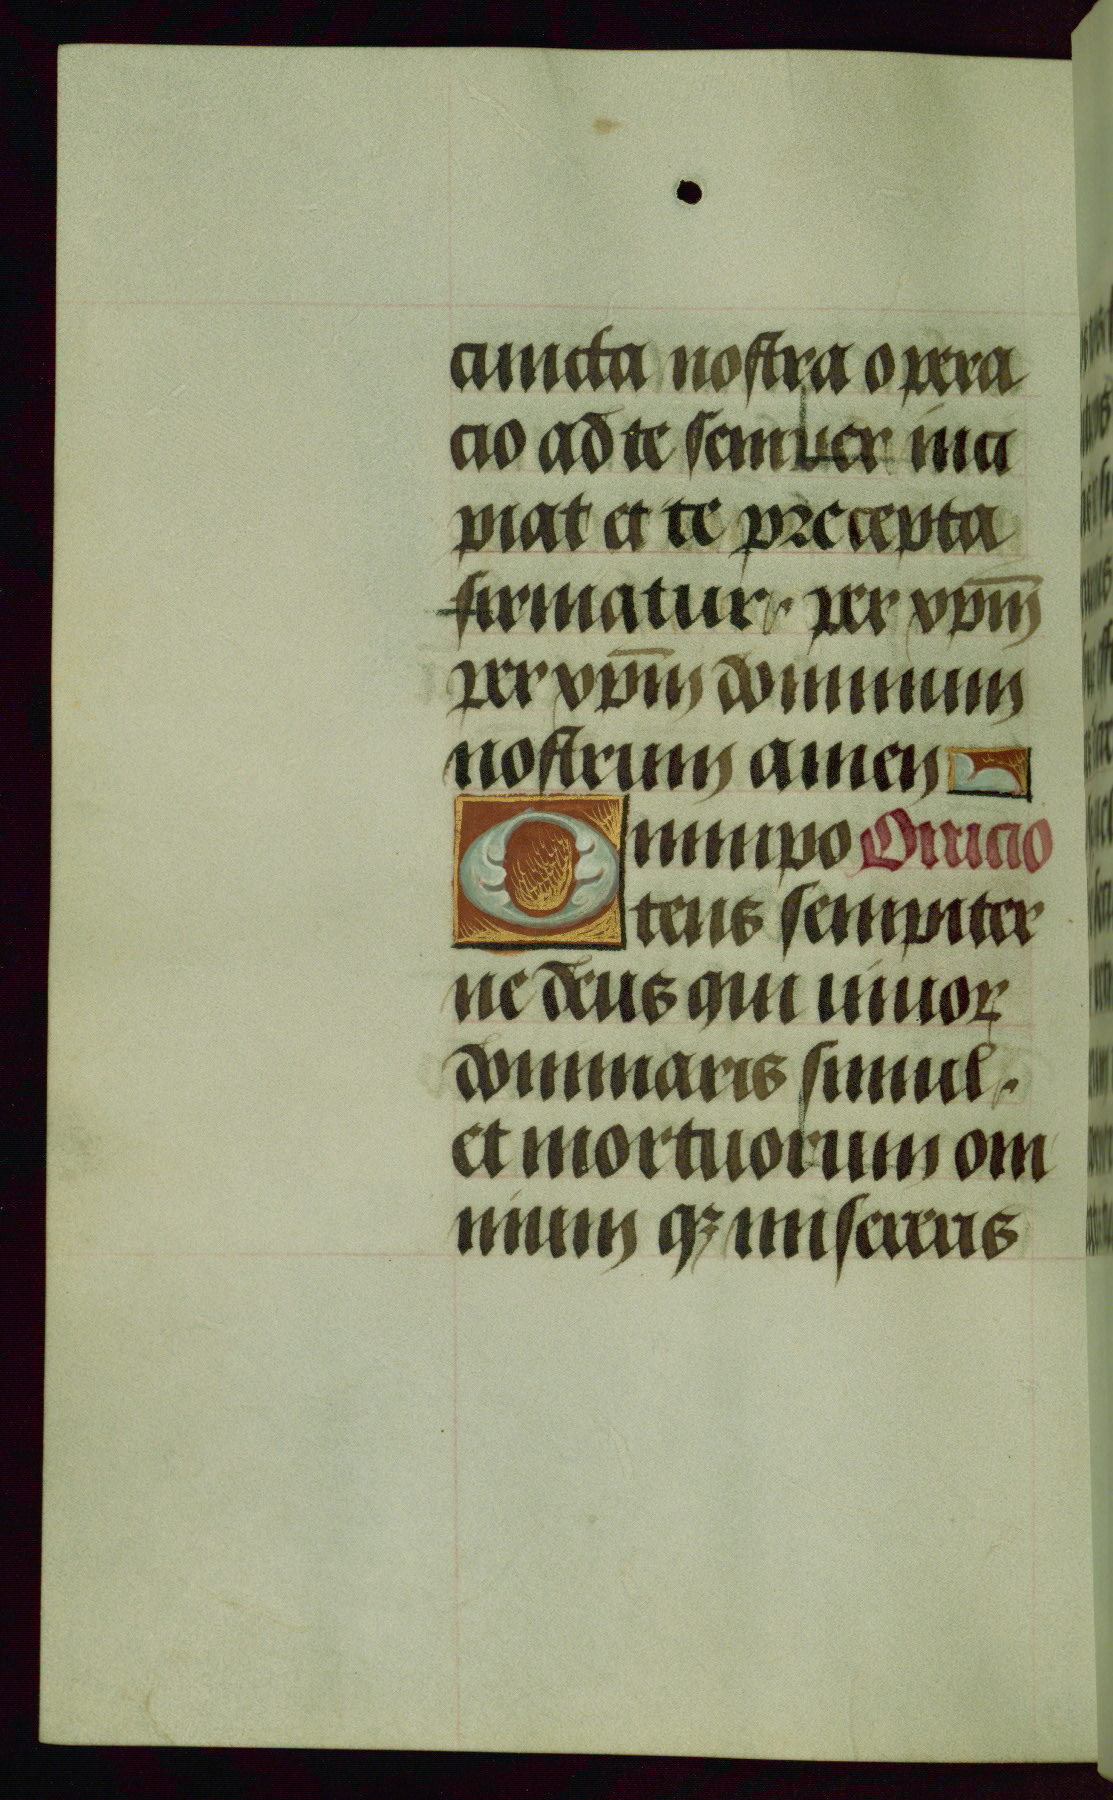 cuncta nostra opera
cio ad te semper inci
piat et te precepta
firmatur per xp̄m
per xp̄m dominum
nostrum amen
Omnipo Oracio
tens sempiter
ne deus qui uiuor
dominaris simul
et mortuorum om
nium qꝫ misereris